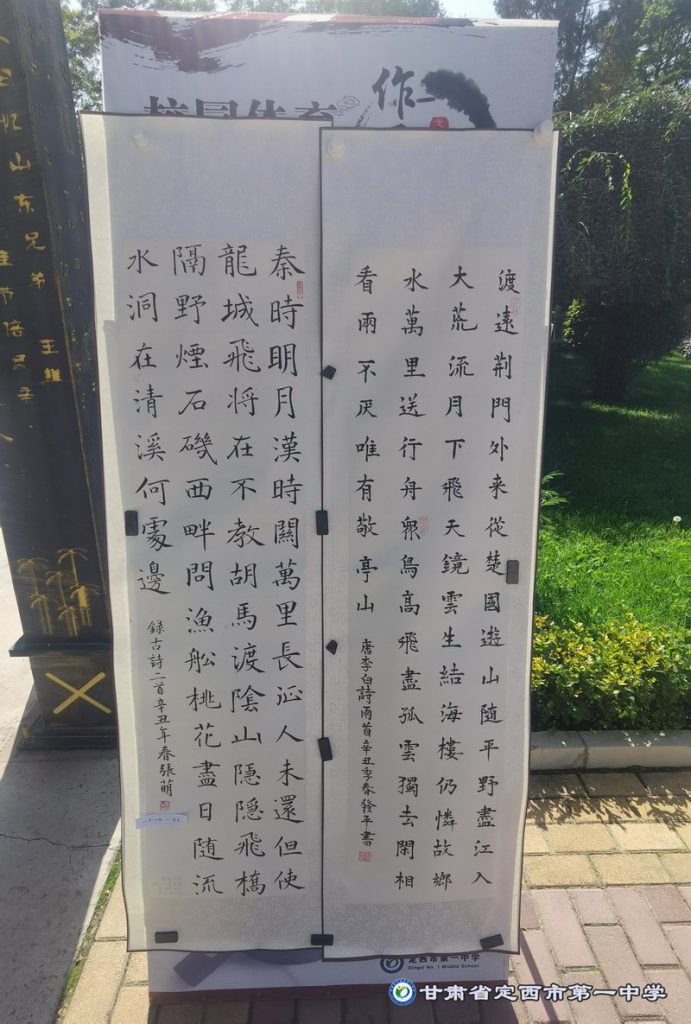 校园体育
作
渡遠荆門外来從楚國遊山隨平野盡江入
大荒流月下飛天鏡雲生結海樓仍憐故鄉
水萬里送行舟眾鳥高飛盡孤雲獨去閑相
看兩不厌唯有敬亭山
唐李白詩兩首辛丑季春發平書
秦時明月漢時關萬里長征人未還但使
龍城飛将在不教胡馬渡陰山隱隱飛橋
隔野煙石磯西畔問漁船桃花盡日隨流
水洞在清溪何處邊
録古詩二首辛丑年春張萌
忆山东兄弟
王维
佳节倍思亲
定西市第一中学
Dingxi No. 1 Middle School
甘肃省定西市第一中学